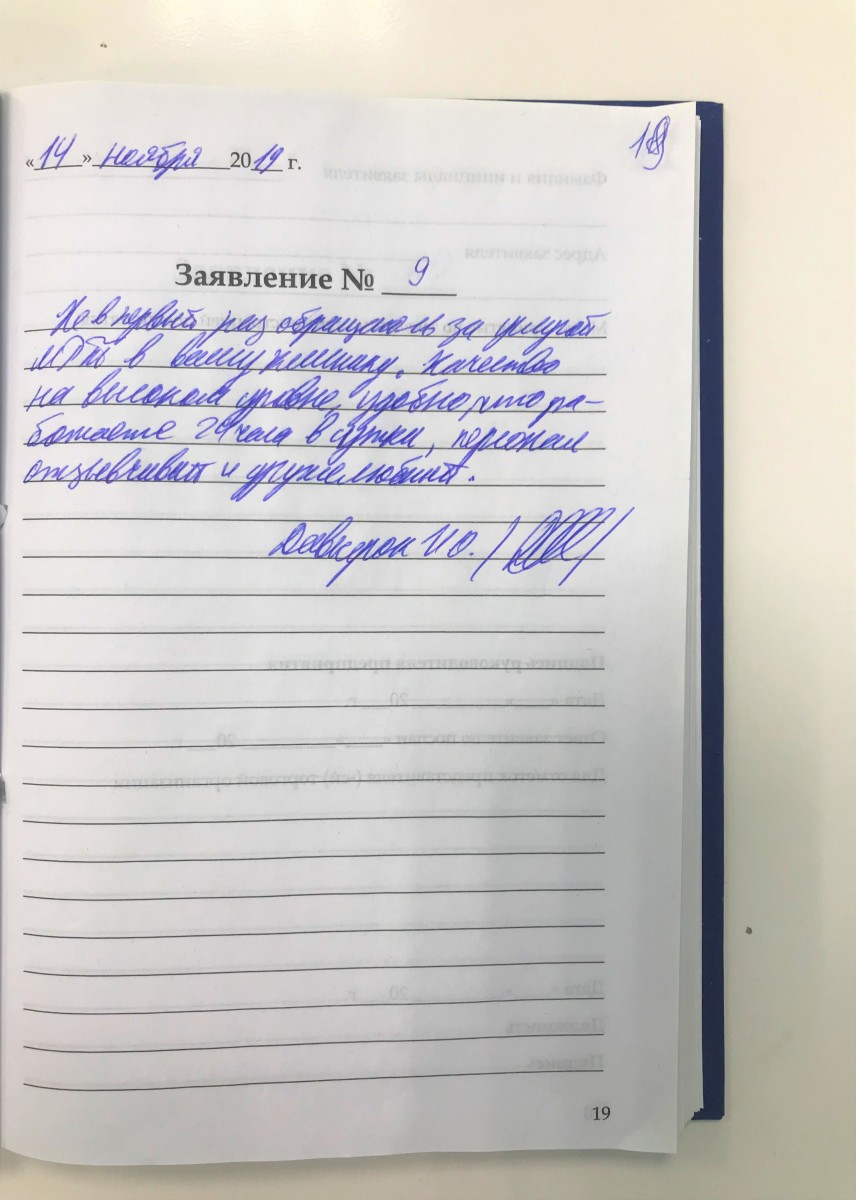 19
«14» ноября 2019 г.
Заявление № 9
Не в первый раз обращаюсь за услугой
МРТ в вашу клинику. Качество
на высоком уровне, удобно, что ра-
ботаете 24 часа в сутки, персонал
отзывчивый и дружелюбный.
19